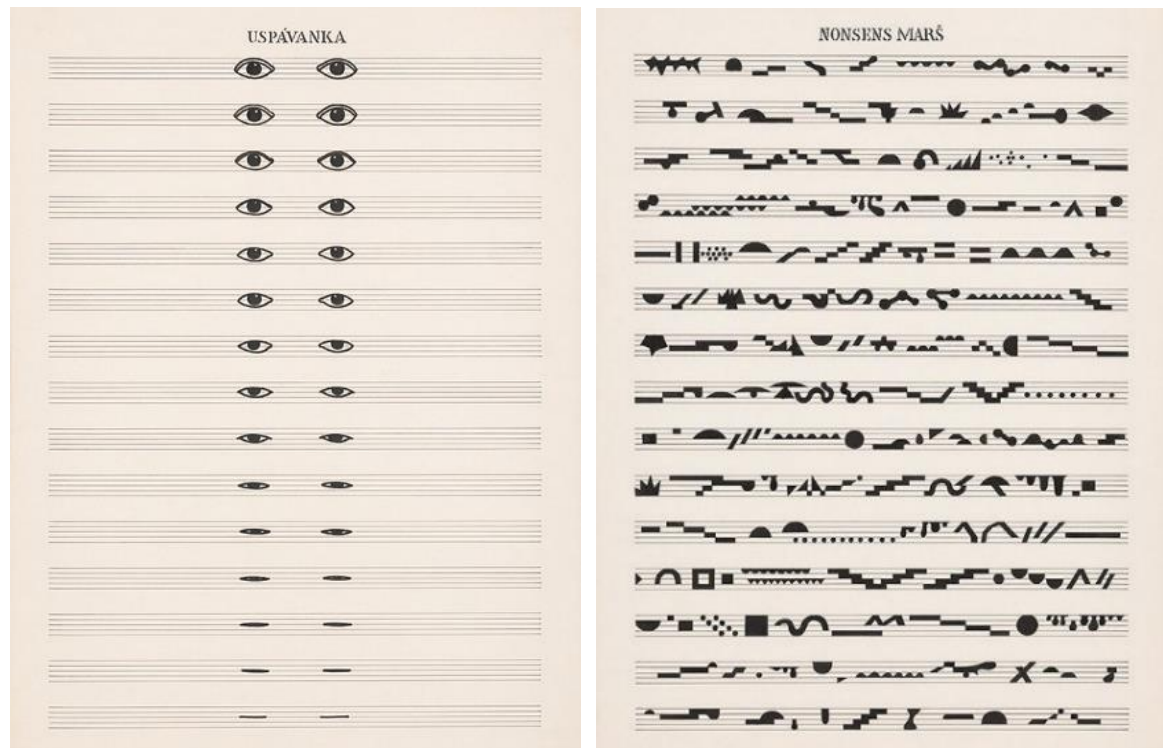 USPÁVANKA
NONSENS MARŠ